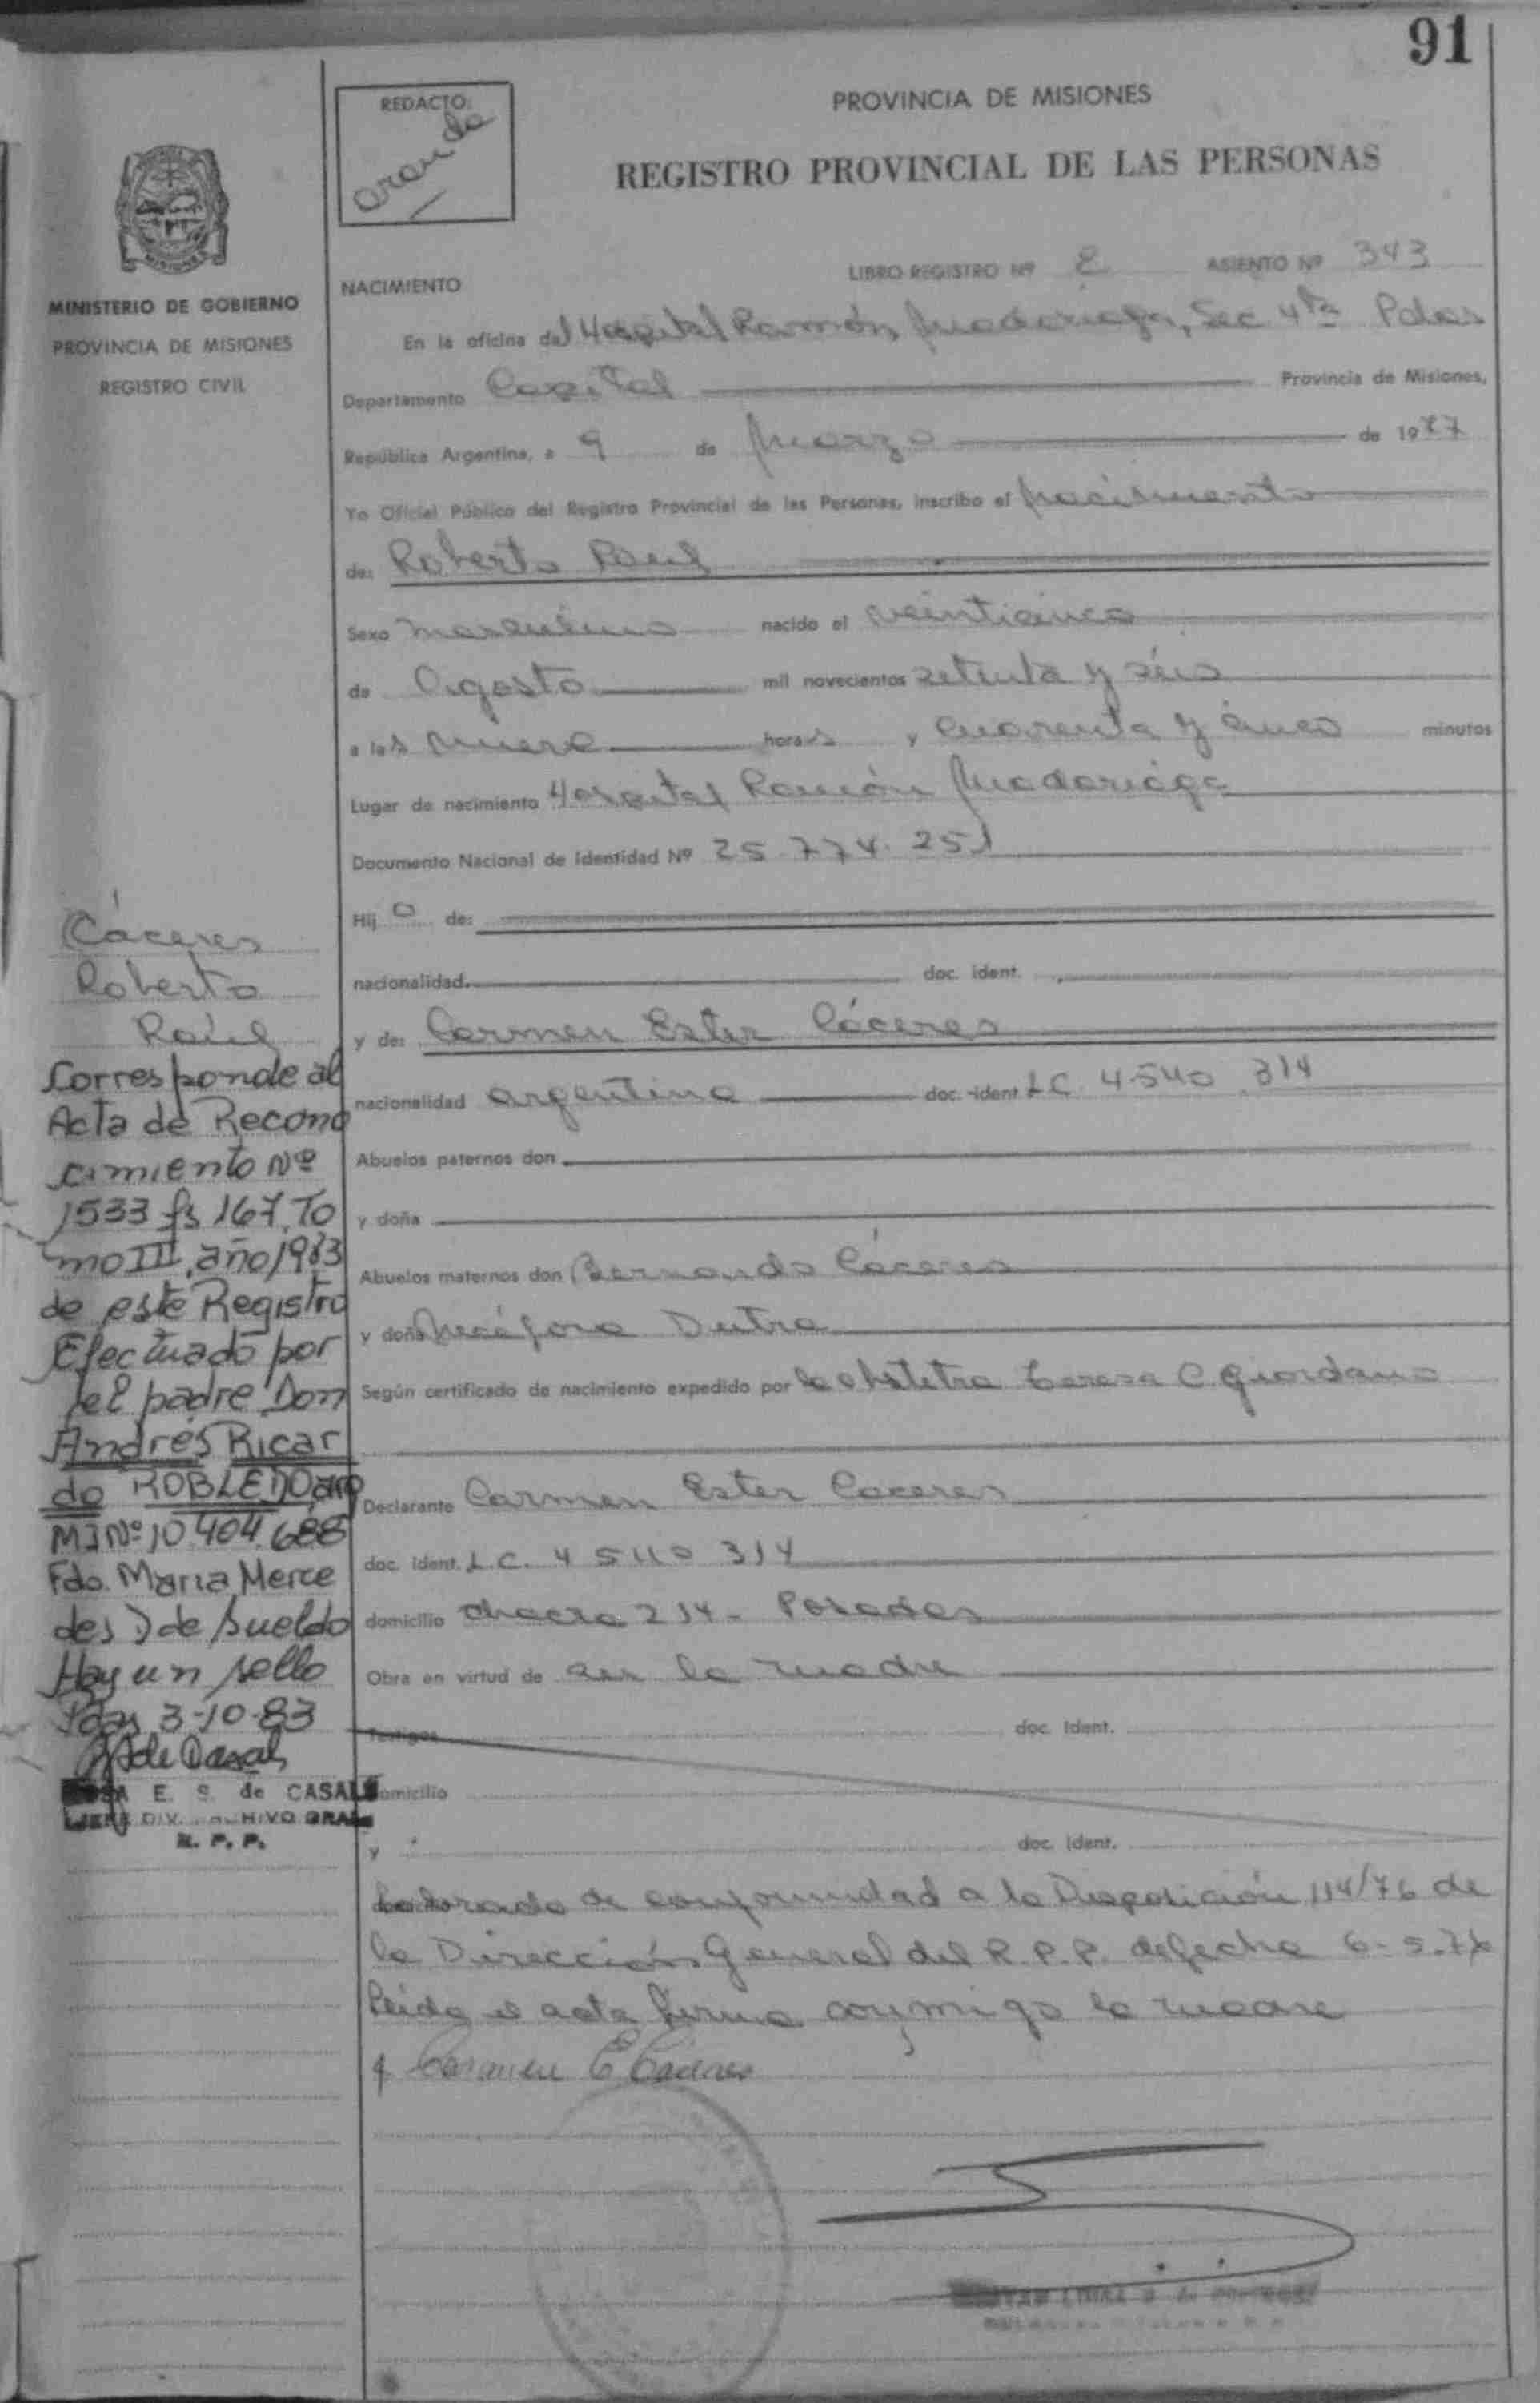 91
REDACTO:
Aranda
PROVINCIA DE MISIONES
REGISTRO PROVINCIAL DE LAS PERSONAS
MISIONES
MINISTERIO DE GOBIERNO
PROVINCIA DE MISIONES
REGISTRO CIVIL
LIBRO REGISTRO Nº 2 ASIENTO Nº 343
NACIMIENTO
En la oficina del Hospital Ramón Madariaga, Sec 4ta Pdas
Departamento Capital Provincia de Misiones,
República Argentina, a 9 de Marzo de 1977
Yo Oficial Público del Registro Provincial de las Personas, inscribo el nacimiento
de: Roberto Raul
Sexo masculino nacido el veinticinco
de Agosto mil novecientos setenta y séis
a las nueve horas y cuarenta y cinco minutos
Lugar de nacimiento Hospital Ramón Madariaga
Documento Nacional de Identidad Nº 25.774.251
Hijo de:
nacionalidad doc. ident.
y de: Carmen Ester Cáceres
nacionalidad argentina doc. ident LC 4.540.314
Abuelos paternos don
y doña
Abuelos maternos don Bernardo Cáceres
y doña Nicéfora Dutra
Según certificado de nacimiento expedido por la obstetra Teresa C. Giordano
Declarante Carmen Ester Caceres
doc. ident. L.C. 4 540 314
domicilio chacra 214 - Posadas
Obra en virtud de ser la madre
Testigos doc. Ident.
domicilio
y doc. ident.
de conformidad a la Disposición 114/76 de
la Dirección General del R.P.P. de fecha 6-5-76
Leida el acta firma conmigo la madre
Carmen E Cáceres
Cáceres
Roberto
Raúl
Corresponde al
Acta de Recono
cimiento Nº
1533 fs 167, To
mo III, año 1983
de este Registro
Efectuado por
el padre Don
Andrés Ricar
do ROBLEDO arg
MI Nº 10.404.688
Fdo. Maria Merce
des D de Sueldo
Hay un sello
Pdas 3-10-83
de Casals
E. S. de CASALS
JEFE DIV. ARCHIVO GRAL
R. P. P.